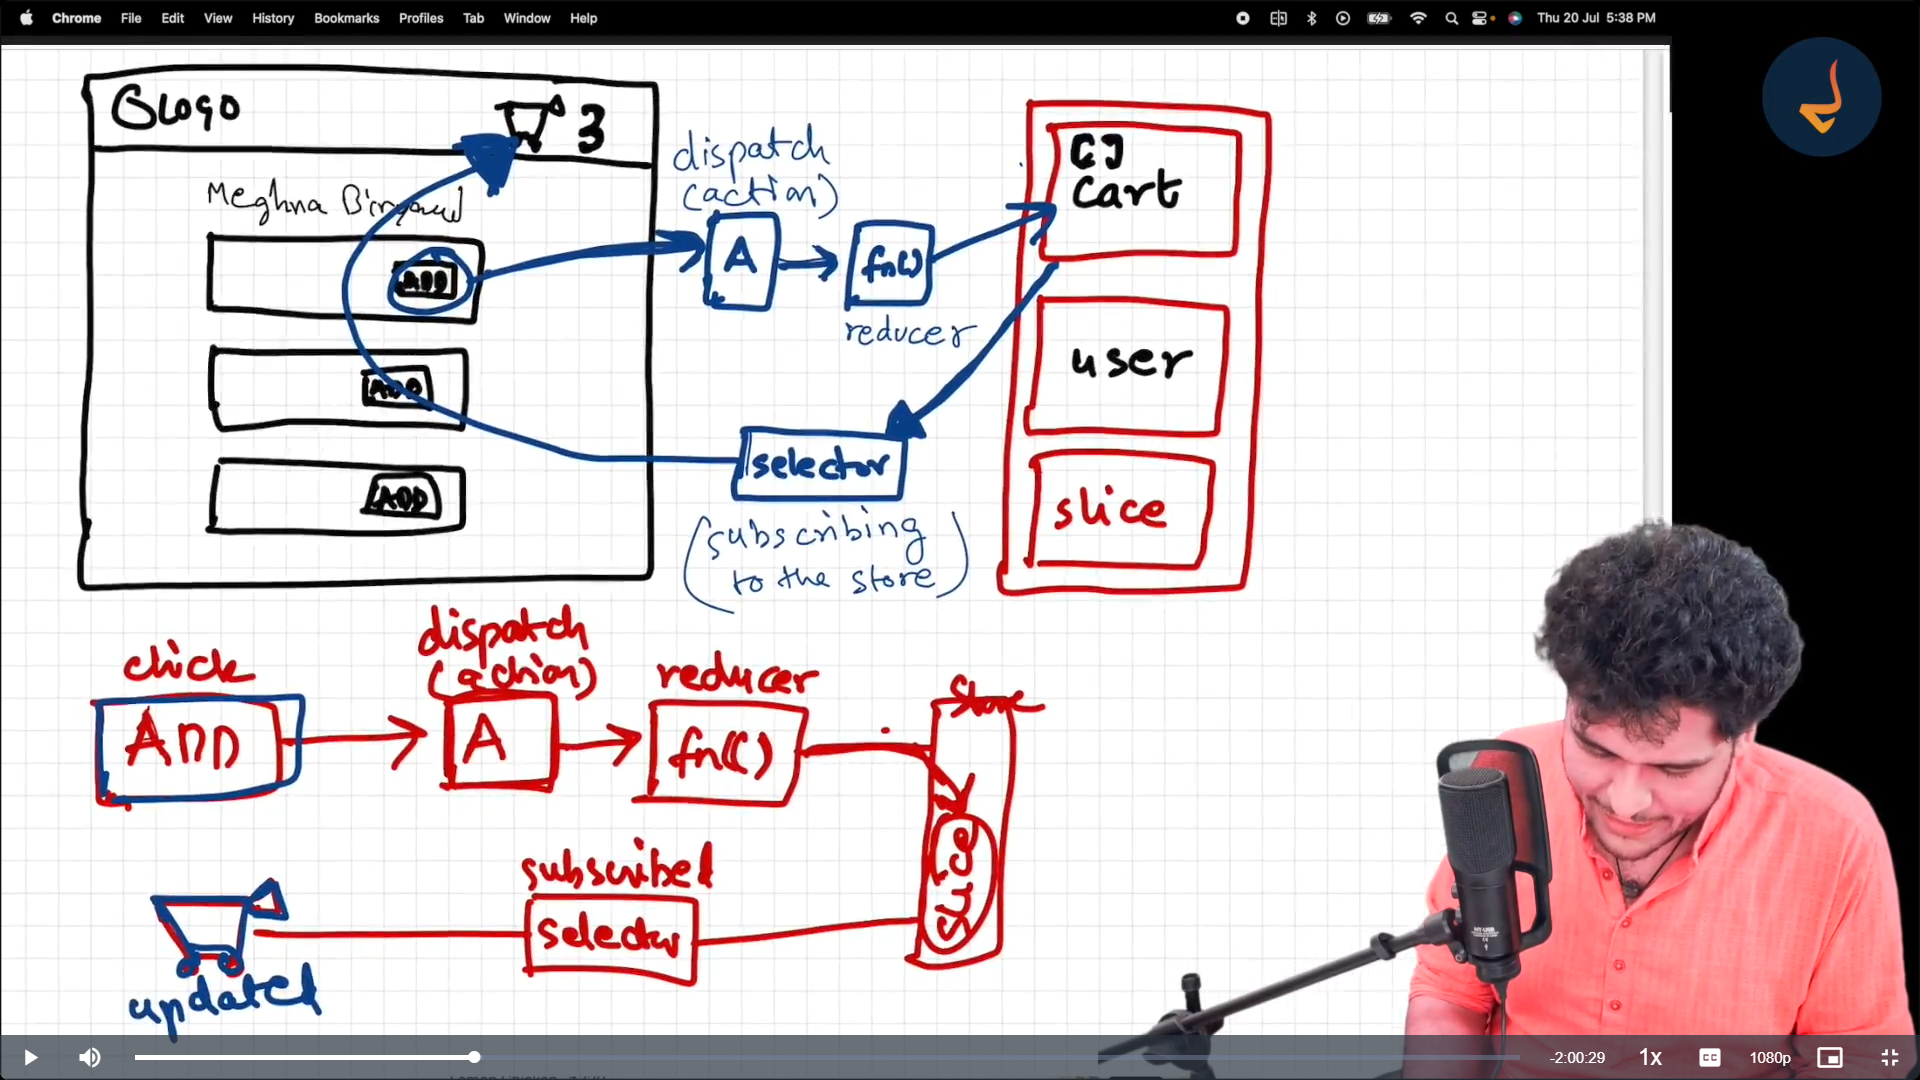 Chrome File Edit View History Bookmarks Profiles Tab Window Help
Thu 20 Jul 5:38 PM
LOGO
3
Meghna
ADD
ADD
ADD
dispatch
(action)
A
fn()
reducer
selector
(subscribing
to the store)
Cart
user
slice
click
ADD
dispatch
(action)
A
reducer
fn()
Store
slice
subscribed
selector
updated
-2:00:29
1x
CC
1080p